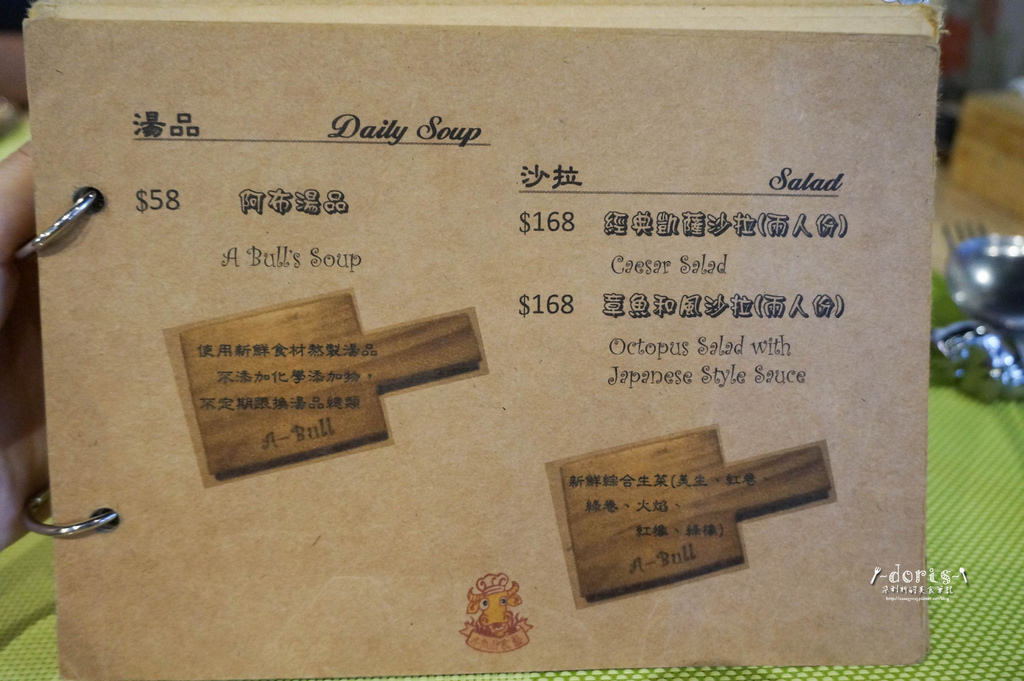 湯品 Daily Soup
$58 阿布湯品
A Bull's Soup
使用新鮮食材熬製湯品
不添加化學添加物，
不定期跟換湯品總類
A-Bull
沙拉 Salad
$168 經典凱薩沙拉(兩人份)
Caesar Salad
$168 章魚和風沙拉(兩人份)
Octopus Salad with
Japanese Style Sauce
新鮮綜合生菜(美生、紅卷、
綠卷、火焰、
紅橡、綠橡)
A-Bull
-doris-